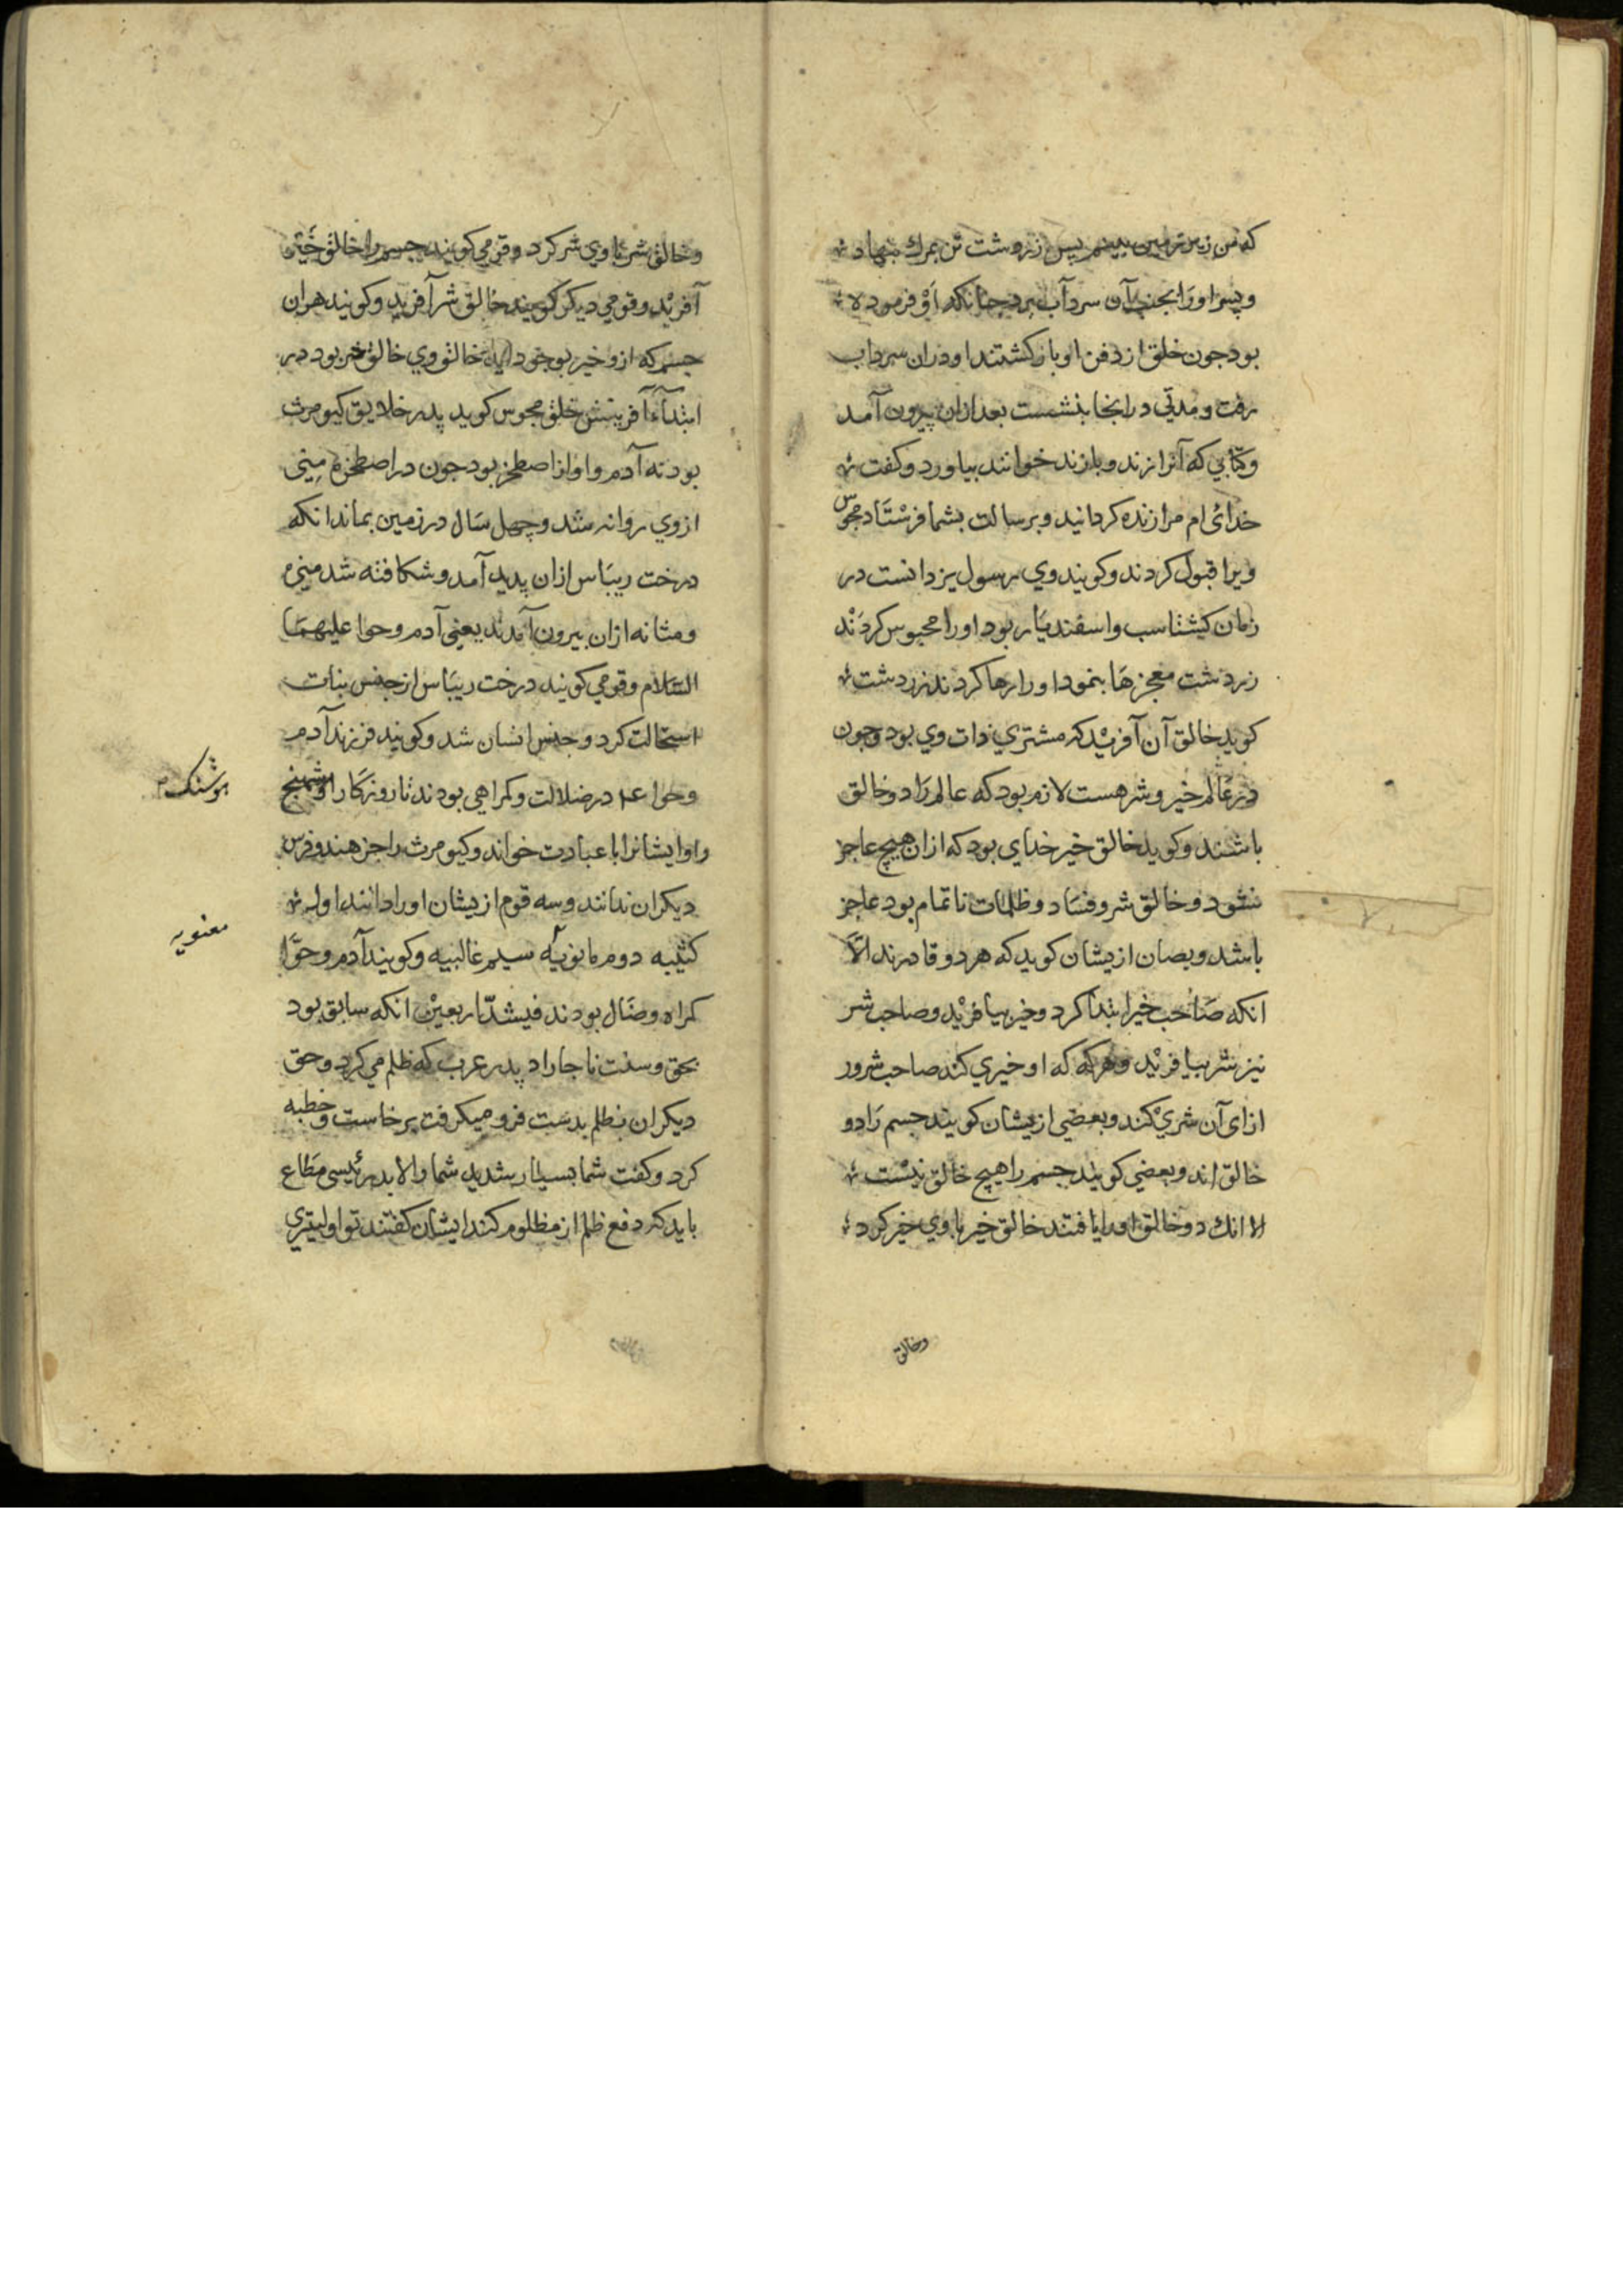 که من زیر زمین بینم پس زردشت تن بمرك بنهاد
و پسر او را بجنب آن سرداب برد چنانکه او فرموده
بود جون خلق از دفن او باز کشتند او دران سرداب
رفت و مدتی درانجا بنشست بعد ازان بیرون آمد
و کتابی که آنرا زند و بازند خوانند بیاورد و کفت
خدای ام مرا زنده کردانید و برسالت بشما فرستاد مجوس
ویرا قبول کردند و کویند وی رسول یزدانست در
زمان کیشتاسب و اسفندیار بود او را محبوس کردند
زردشت معجزها بنمود او را رها کردند زردشت
کوید خالق آن آفرید که مشتری ذات وی بود و جون
در عالم خیر و شر هست لازم بود که عالم را دو خالق
باشند و کوید خالق خیر خدای بود که ازان هیچ عاجز
نشود و خالق شر و فساد و ظلمات ناتمام بود عاجز
باشد و بعضان ازیشان کوید که هر دو قادرند الا
انکه صاحب خیر ابتدا کرد و خیر بیافرید و صاحب شر
نیز شر بیافرید و هرکه که او خیری کند صاحب شرور
ازای آن شری کند و بعضی ازیشان کویند جسم را دو
خالق اند و بعضی کویند جسم را هیچ خالق نیست
الا انك دو خالق اورا یافتند خالق خیر با وی خیر کرد
وخالق
وخالق شر با وی شر کرد و قومی کویند جسم را خالق خیر
آفرید و قومی دیکر کویند خالق شر آفرید و کویند هران
جسم که ازو خیر بوجود آید خالق وی خالق خیر بود در
ابتداء آفرینش خلق مجوس کوید پدر خلایق کیومرث
بود نه آدم و او از اصطخر بود جون در اصطخر منی
از وی روانه شد و چهل سال در زمین بماند انکه
درخت ریباس ازان پدید آمد و شکافته شد منی
و مثانه ازان بیرون آمدند یعنی آدم و حوا علیهما
السلام و قومی کویند درخت ریباس از جنس نبات
استحالت کرد و جنس انسان شد و کویند فرزند آدم
و حوا عم در ضلالت و کمراهی بودند تا روزکار اوشهنج
هوشنک
و او ایشانرا با عبادت خواند و کیومرث را جز هند و فرس
دیکران ندانند و سه قوم ازیشان اورا دانند اول
کثیبه دوم مانویه سیم غالبیه و کویند آدم و حوا
معنویه
کمراه و ضال بودند فیشدّاربعین انکه سابق بود
بحق و سنت تا جاراد پدر عرب که ظلم می کرد و حق
دیکران بظلم بدست فرو میکرفت برخاست و خطبه
کرد و کفت شما بسیار شدید شما را لابد رئیسی مطاع
باید که دفع ظلم از مظلوم کند ایشان کفتند تو اولیتری